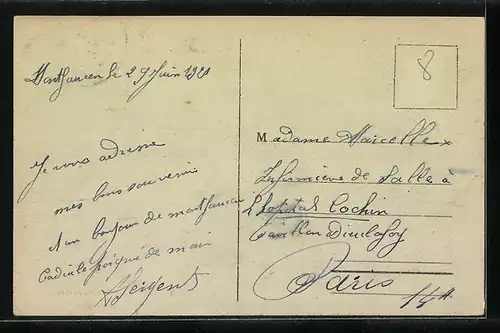 Montfaucon le 29 Juin 1920
Je vous adresse
mes bons souvenirs
d'un bonjour de montfaucon
Cadiale poignée de main
Sergent
8
Madame Marcelle
Infirmière de Salle à
L'hopital Cochin
Pavillon Dieulafoy
Paris
14e